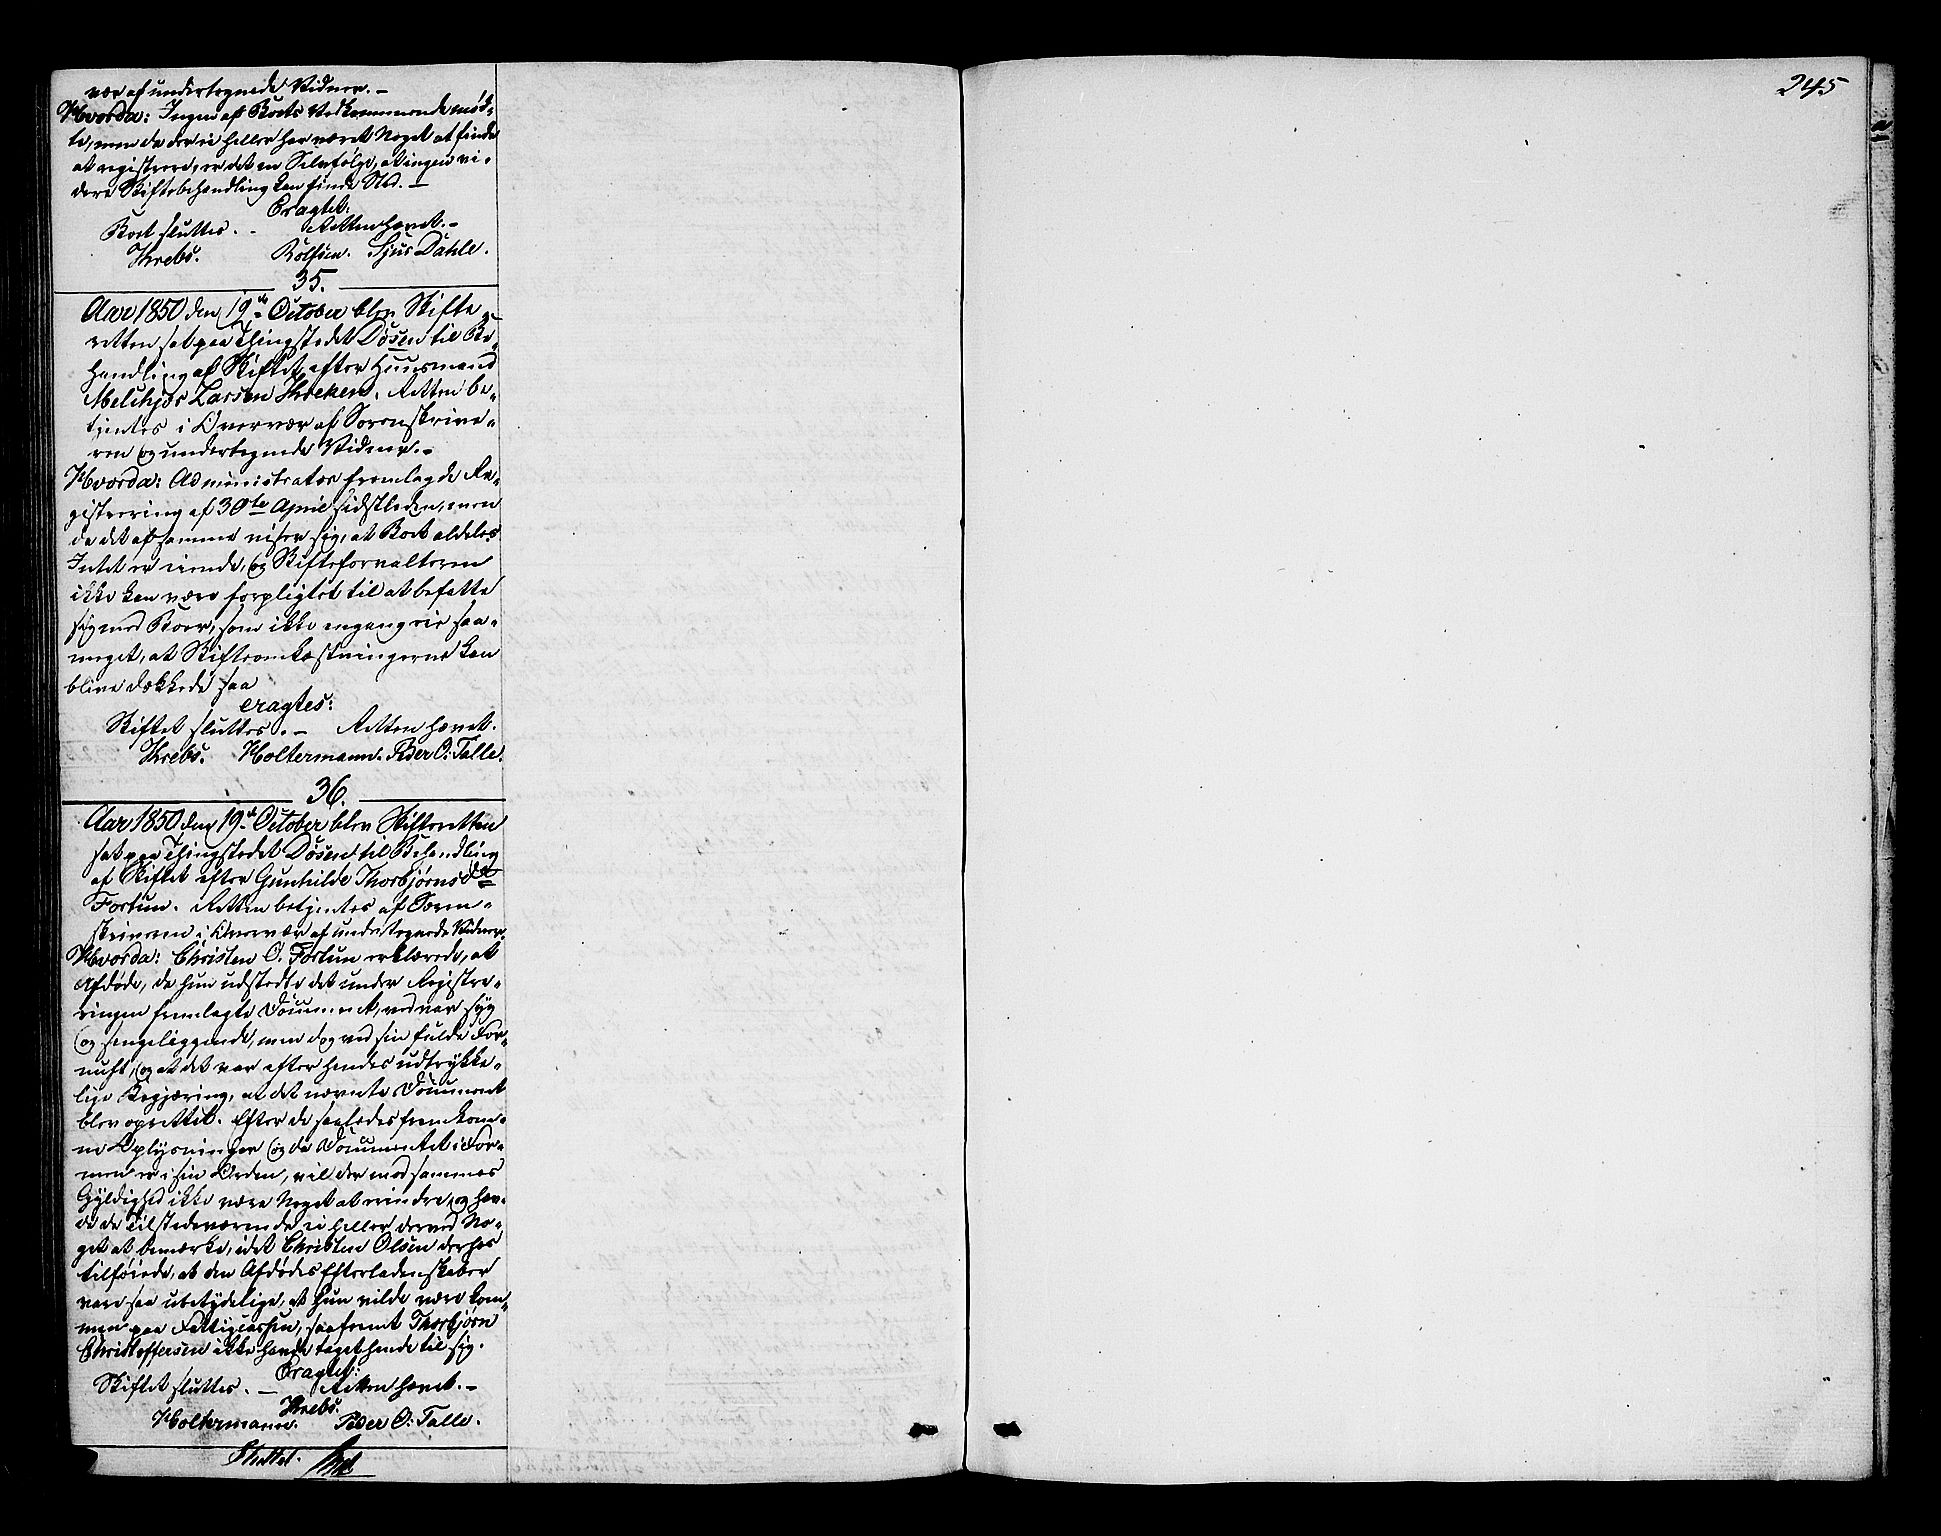 vær af undertegnede Vidner. –
Hvorda: Ingen af Boets Vedkommende mød-
te, men da der ei heller har været Noget at finde
at registrere, er det en Selvfølge, at ingen vi-
dere Skiftebehandling kan finde Sted. –
Eragtet:
Boet sluttes. – Retten hævet. –
Krebs. Rolfsen. Sjur Dahle.
35.
Aar 1850 den 19de October blev Skifte-
retten sat paa Thingstedet Døsen til Be-
handling af Skiftet efter Huusmand
Melchjor Larsen Kroken. Retten be-
tjentes i Overvær af Sorenskrive-
ren og undertegnede Vidner. –
Hvorda: Administrator fremlagde Re-
gistrering af 30te April sidstleden, men
da det af samme viser sig, at Boet aldeles
Intet er eiende, og Skifteforvalteren
ikke kan være forpligtet til at befatte
sig med Boer, som ikke engang eie saa-
meget, at Skifteomkostningerne kan
blive dækkede saa
eragtes:
Skiftet sluttes. – Retten hævet.
Krebs. Holtermann. Peder O: Talle.
36.
Aar 1850 den 19de October blev Skifteretten
sat paa Thingstedet Døsen til Behandling
af Skiftet efter Gunhilde Thorbjørnsdr
Fortun. Retten betjentes af Soren-
skriveren i Overvær af undertegnede Vidner.
Hvorda: Christen O. Fortun erklærede, at
Afdøde, da hun udstedte det under Registre-
ringen fremlagte Document, vel var syg
og sengeliggende, men dog ved sin fulde For-
nuft, og at det var efter hendes udtrykke-
lige Begjæring, at det nævnte Document
blev oprettet. Efter de saaledes fremkom-
ne Oplysninger og da Documentet i For-
men er i sin Orden, vil der mod sammes
Gyldighed ikke være Noget at erindre, og hav-
de de Tilstedeværende ei heller derved No-
get at bemærke, idet Christen Olsen derhos
tilføiede, at den Afdødes Efterladenskaber
vare saa ubetydelige, at hun vilde være kom-
men paa Fattigcassen, saafremt Thorbjørn
Christoffersen ikke havde taget hende til sig.
Eragtet:
Skiftet sluttes. – Retten hævet. –
Krebs.
Holtermann. Peder O: Talle.
Sluttet.
245